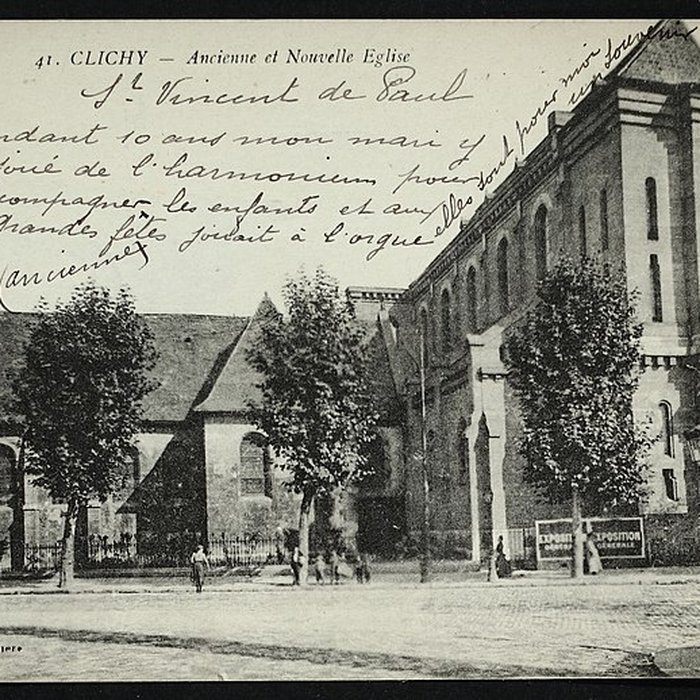 41. CLICHY — Ancienne et Nouvelle Eglise
St Vincent de Paul
ndant 10 ans mon mari y
joué de l'harmonium pour
compagner les enfants et aux
grandes fêtes jouait à l'orgue
(ancienne)
elles sont pour moi
un souvenir
EXPOSITION EXPOSITION
GÉNÉRALE GÉNÉRALE